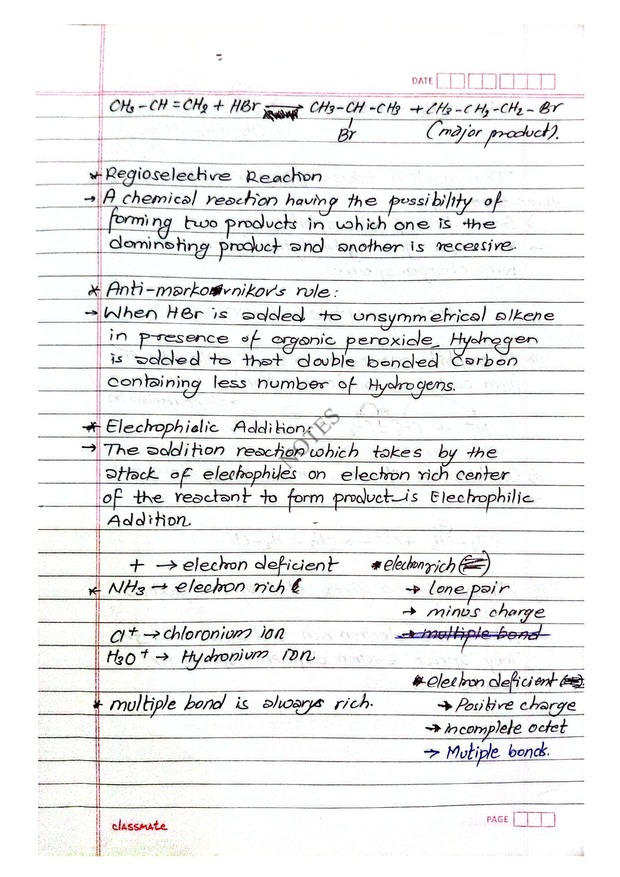 DATE
CH3-CH=CH2 + HBr → CH3-CH-CH3 + CH3-CH2-CH2-Br
Br (major product).
* Regioselective Reaction
→ A chemical reaction having the possibility of
forming two products in which one is the
dominating product and another is recessive.
* Anti-markovnikov's rule:
→ When HBr is added to unsymmetrical alkene
in presence of organic peroxide, Hydrogen
is added to that double bonded Carbon
containing less number of Hydrogens.
* Electrophialic Addition:
→ The addition reaction which takes by the
attack of electrophiles on electron rich center
of the reactant to form product is Electrophilic
Addition.
NOTES
+ → electron deficient * electron rich
* NH3 → electron rich → lone pair
→ minus charge
Cl+ → chloronium ion → multiple bond
H3O+ → Hydronium ion
* electron deficient
* multiple bond is always rich. → Positive charge
→ incomplete octet
→ Mutiple bonds.
classmate
PAGE